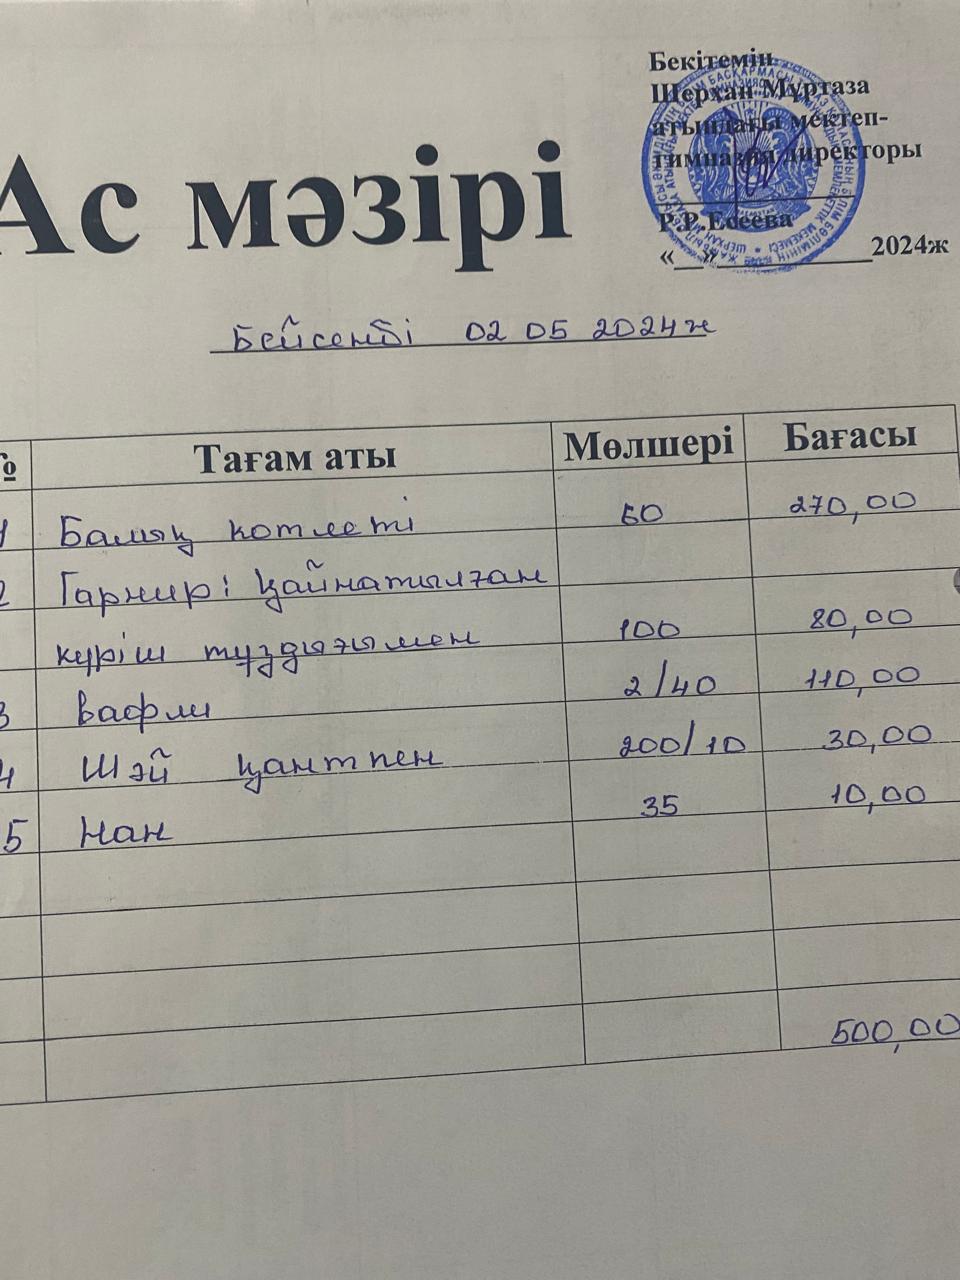 Бекітемін
Шерхан Мұртаза
атындағы мектеп-
гимназия директоры
Р.Р.Есеева
«__»____________2024ж
Ас мәзірі
Бейсенбі 02 05 2024ж
№ Тағам аты Мөлшері Бағасы
1 Балық котлеті 60 270,00
2 Гарнирі қайнатылған
күріш тұздығымен 100 80,00
3 вафли 2/40 110,00
4 Шәй қантпен 200/10 30,00
5 Нан 35 10,00
500,00